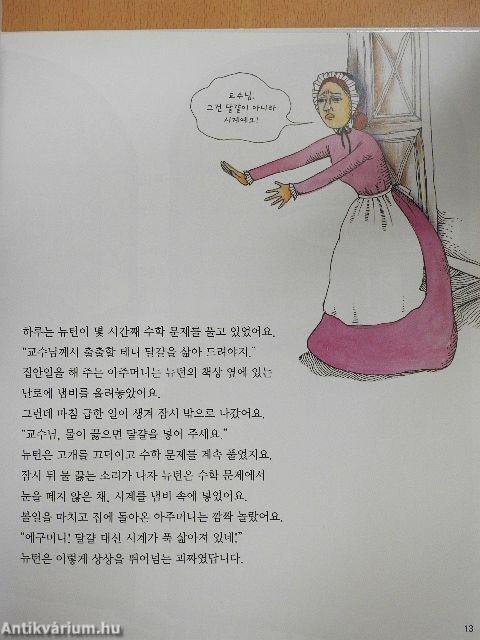 교수님,
그건 달걀이 아니라
시계예요!
하루는 뉴턴이 몇 시간째 수학 문제를 풀고 있었어요.
"교수님께서 출출할 테니 달걀을 삶아 드려야지."
집안일을 해 주는 아주머니는 뉴턴의 책상 옆에 있는
난로에 냄비를 올려놓았어요.
그런데 마침 급한 일이 생겨 잠시 밖으로 나갔어요.
"교수님, 물이 끓으면 달걀을 넣어 주세요."
뉴턴은 고개를 끄덕이고 수학 문제를 계속 풀었지요.
잠시 뒤 물 끓는 소리가 나자 뉴턴은 수학 문제에서
눈을 떼지 않은 채, 시계를 냄비 속에 넣었어요.
볼일을 마치고 집에 돌아온 아주머니는 깜짝 놀랐어요.
"에구머니! 달걀 대신 시계가 푹 삶아져 있네!"
뉴턴은 이렇게 상상을 뛰어넘는 괴짜였답니다.
13
Antikvárium.hu